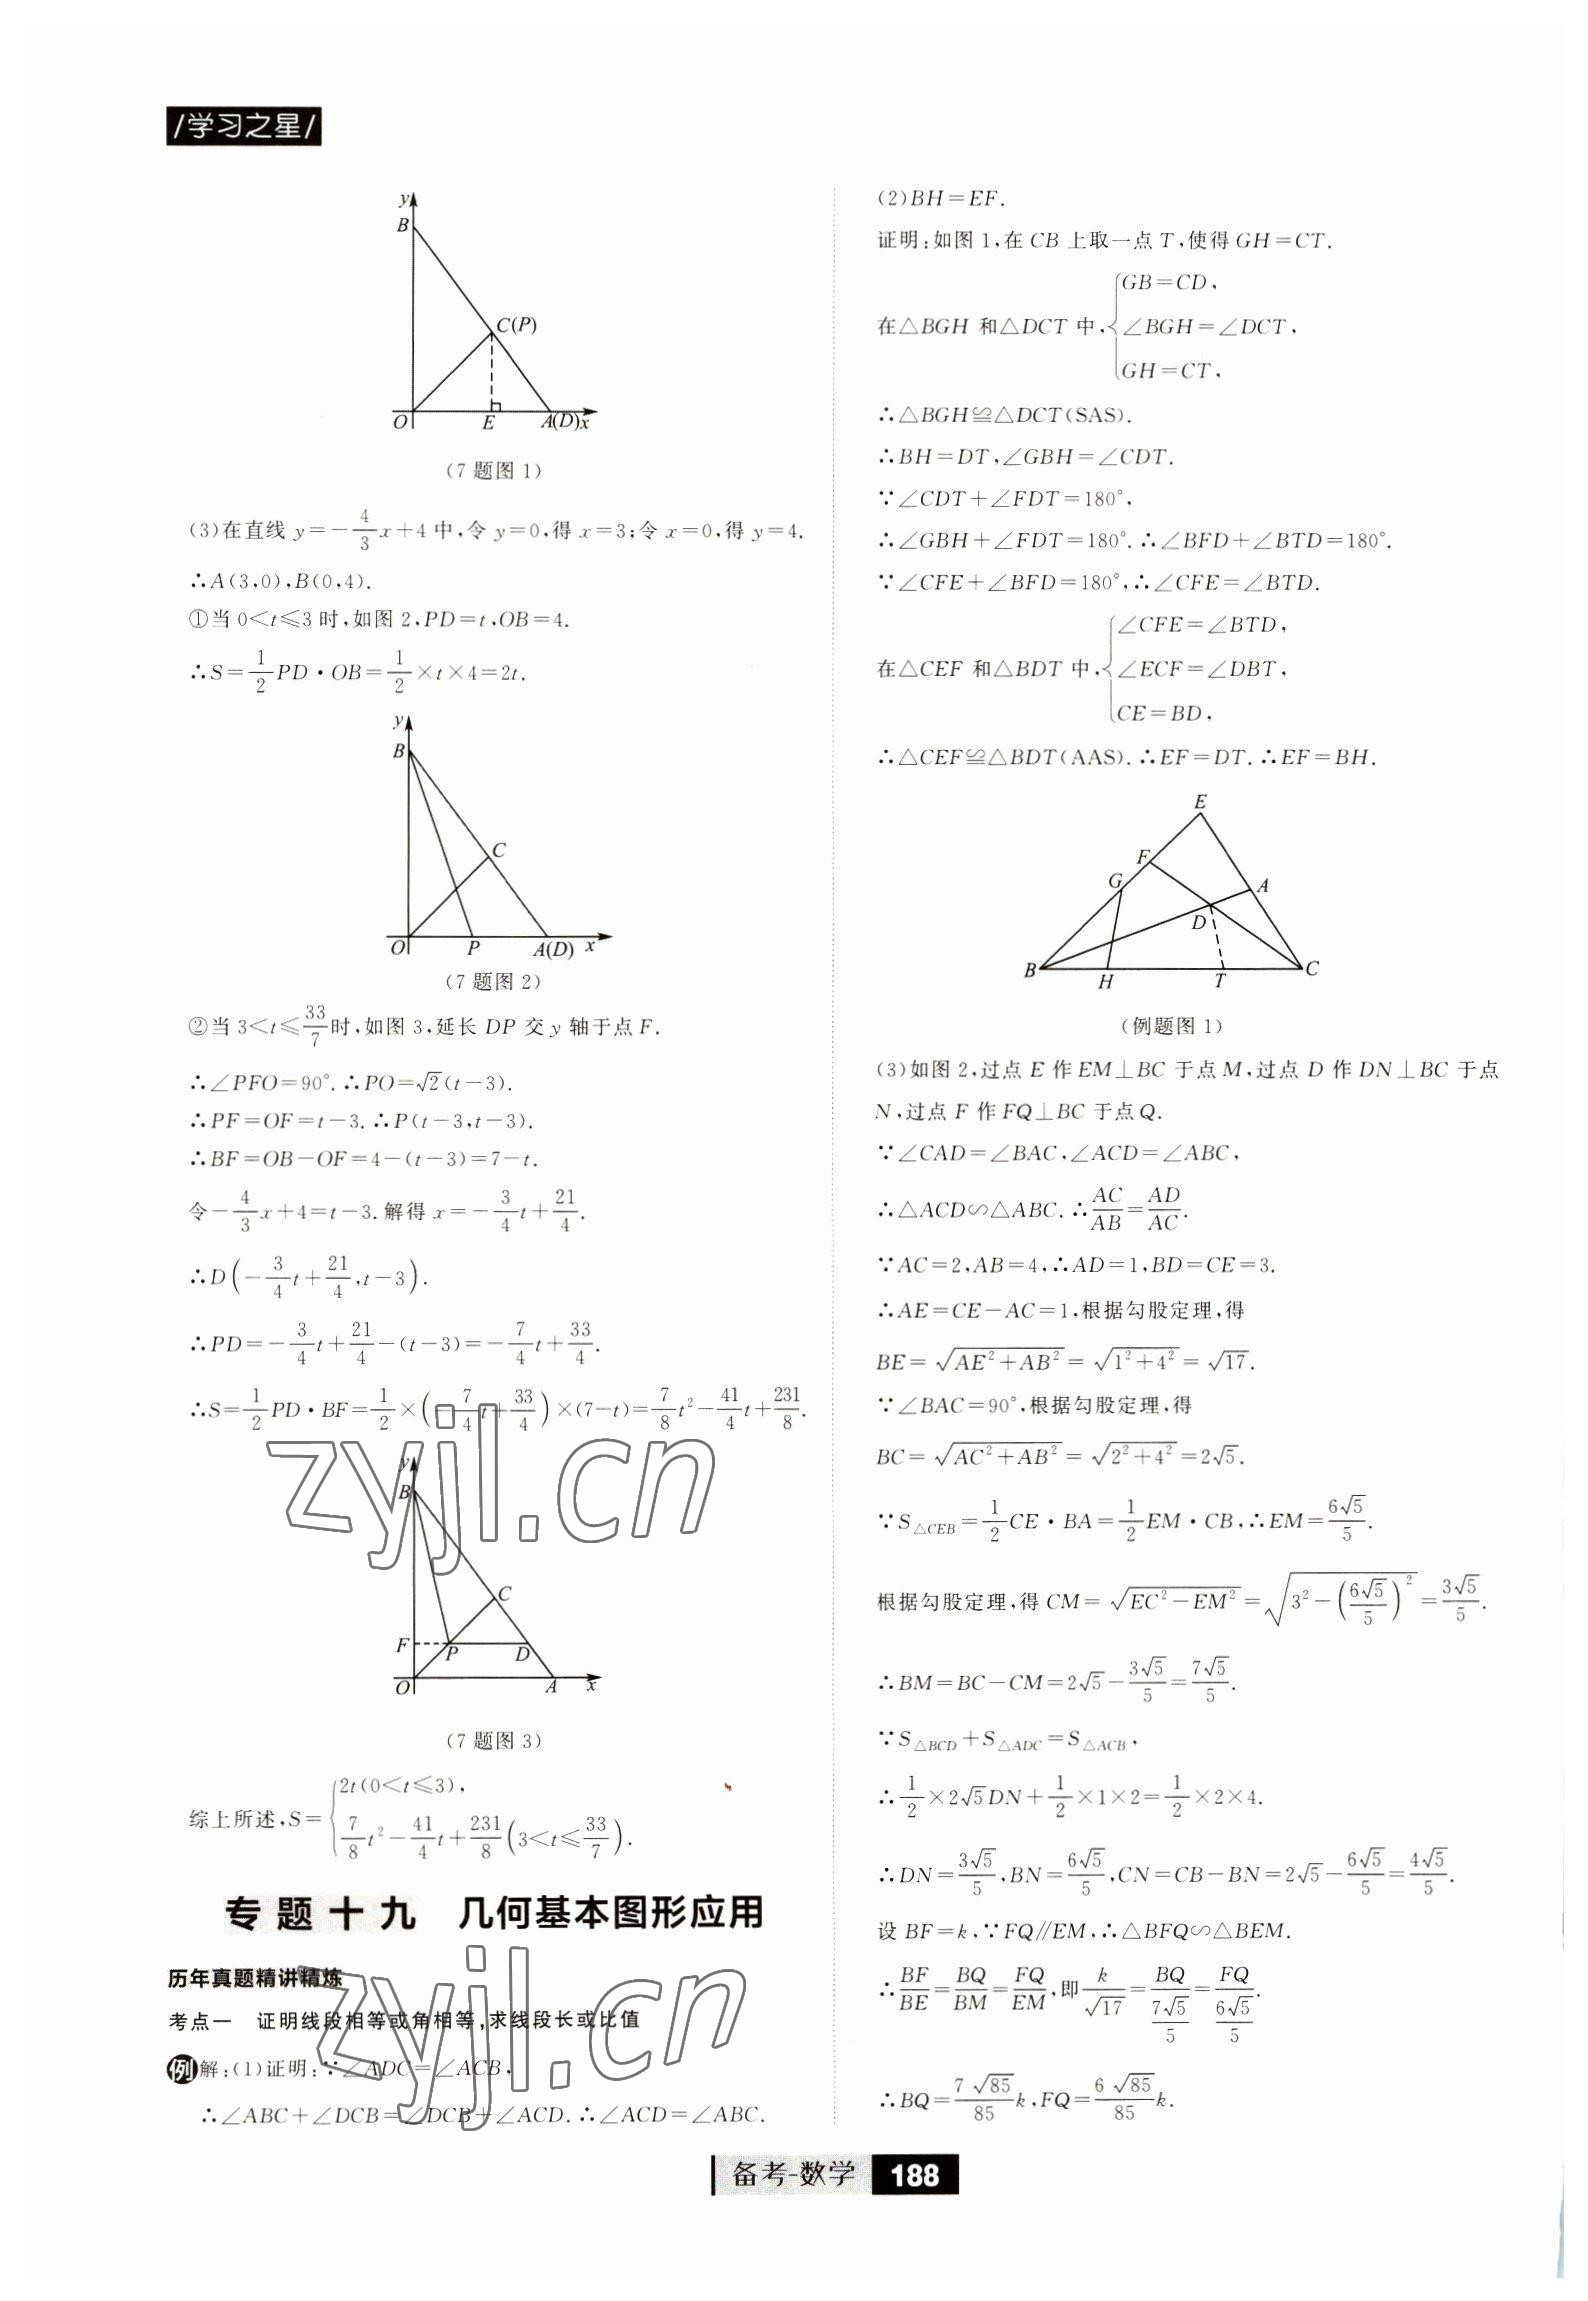 /学习之星/
y
B
C(P)
O E A(D)x
(7 题图 1)
(3)在直线 y=-4/3x+4 中,令 y=0,得 x=3;令 x=0,得 y=4.
∴A(3,0),B(0,4).
①当 0<t≤3 时,如图 2,PD=t,OB=4.
∴S=1/2PD·OB=1/2×t×4=2t.
y
B
C
O P A(D) x
(7 题图 2)
②当 3<t≤33/7时,如图 3,延长 DP 交 y 轴于点 F.
∴∠PFO=90°.∴PO=√2(t-3).
∴PF=OF=t-3.∴P(t-3,t-3).
∴BF=OB-OF=4-(t-3)=7-t.
令-4/3x+4=t-3.解得 x=-3/4t+21/4.
∴D(-3/4t+21/4,t-3).
∴PD=-3/4t+21/4-(t-3)=-7/4t+33/4.
∴S=1/2PD·BF=1/2×(-7/4t+33/4)×(7-t)=7/8t²-41/4t+231/8.
zyjl.cn
y
B
C
F P D
O A x
(7 题图 3)
综上所述,S={2t(0<t≤3),
7/8t²-41/4t+231/8(3<t≤33/7).
专题十九 几何基本图形应用
历年真题精讲精炼
zyjl.cn
考点一 证明线段相等或角相等,求线段长或比值
例 解:(1)证明:∵∠ADC=∠ACB,
∴∠ABC+∠DCB=∠DCB+∠ACD.∴∠ACD=∠ABC.
(2)BH=EF.
证明:如图 1,在 CB 上取一点 T,使得 GH=CT.
在△BGH 和△DCT 中,{GB=CD,
∠BGH=∠DCT,
GH=CT,
∴△BGH≌△DCT(SAS).
∴BH=DT,∠GBH=∠CDT.
∵∠CDT+∠FDT=180°,
∴∠GBH+∠FDT=180°.∴∠BFD+∠BTD=180°.
∵∠CFE+∠BFD=180°,∴∠CFE=∠BTD.
在△CEF 和△BDT 中,{∠CFE=∠BTD,
∠ECF=∠DBT,
CE=BD,
∴△CEF≌△BDT(AAS).∴EF=DT.∴EF=BH.
E
F
G A
D
B H T C
(例题图 1)
(3)如图 2,过点 E 作 EM⊥BC 于点 M,过点 D 作 DN⊥BC 于点
N,过点 F 作 FQ⊥BC 于点 Q.
∵∠CAD=∠BAC,∠ACD=∠ABC,
∴△ACD∽△ABC.∴AC/AB=AD/AC.
∵AC=2,AB=4,∴AD=1,BD=CE=3.
∴AE=CE-AC=1,根据勾股定理,得
BE=√(AE²+AB²)=√(1²+4²)=√17.
∵∠BAC=90°,根据勾股定理,得
BC=√(AC²+AB²)=√(2²+4²)=2√5.
∵S△CEB=1/2CE·BA=1/2EM·CB,∴EM=6√5/5.
根据勾股定理,得 CM=√(EC²-EM²)=√(3²-(6√5/5)²)=3√5/5.
∴BM=BC-CM=2√5-3√5/5=7√5/5.
∵S△BCD+S△ADC=S△ACB,
∴1/2×2√5DN+1/2×1×2=1/2×2×4.
∴DN=3√5/5,BN=6√5/5,CN=CB-BN=2√5-6√5/5=4√5/5.
设 BF=k,∵FQ∥EM,∴△BFQ∽△BEM.
∴BF/BE=BQ/BM=FQ/EM,即k/√17=BQ/(7√5/5)=FQ/(6√5/5).
∴BQ=7√85/85k,FQ=6√85/85k.
备考-数学 188